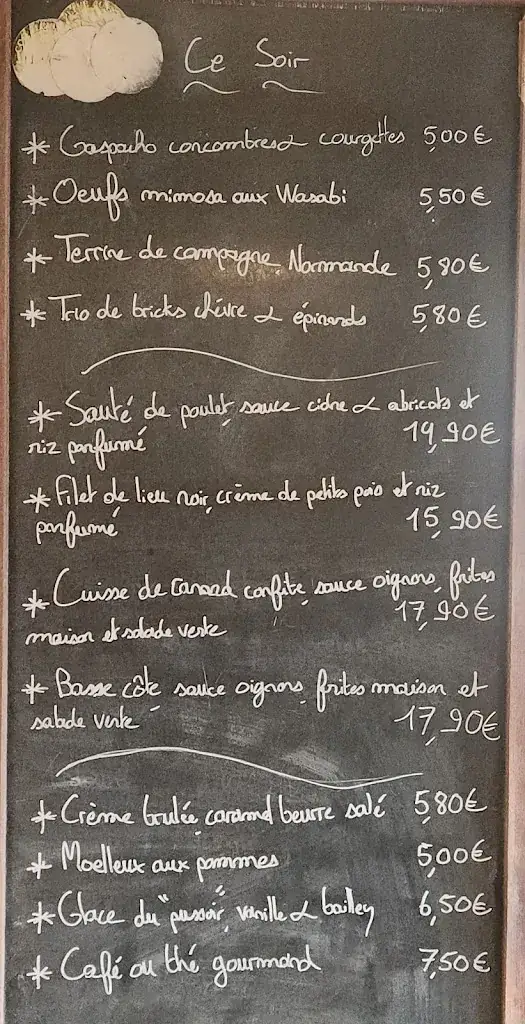 Ce Soir
* Gaspacho concombres & courgettes 5,00€
* Oeufs mimosa aux Wasabi 5,50€
* Terrine de campagne Normande 5,80€
* Trio de bricks chèvre & épinards 5,80€
* Sauté de poulet, sauce cidre & abricots et
riz parfumé 19,90€
* Filet de lieu noir, crème de petits pois et riz
parfumé 15,90€
* Cuisse de Canard confite, sauce oignons, frites
maison et salade verte 17,90€
* Basse côte sauce oignons, frites maison et
salade verte 17,90€
* Crème brulée caramel beurre salé 5,80€
* Moelleux aux pommes 5,00€
* Glace du "pussoir", vanille & bailley 6,50€
* Café ou thé gourmand 7,50€